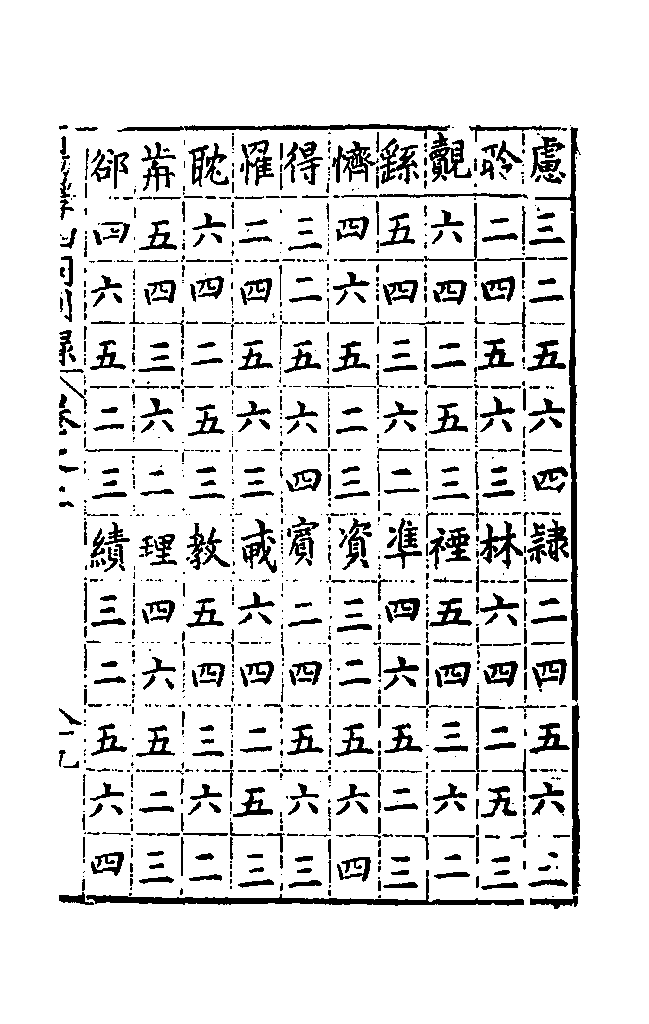 慮三二五六四隷二四五六三
聆二四五六三林六四二五三
覿六四二五三禋五四三六二
繇五四三六二凖四六五二三
懠四六五二三資三二五六四
得三二五六四賓二四五六三
懼二四五六三烕六四二五三
耽六四二五三教五四三六二
荓五四三六二理四六五二三
郤四六五二三績三二五六四